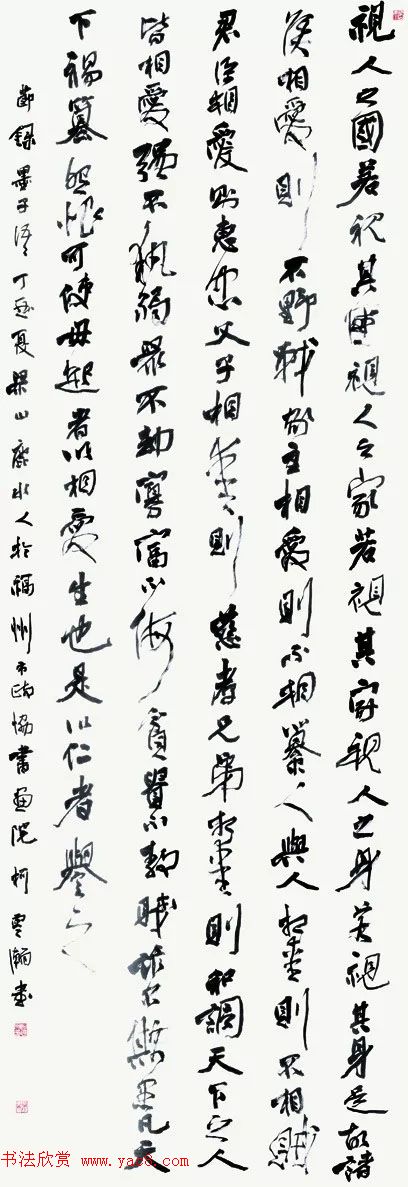 視人之國若視其國視人之家若視其家視人之身若視其身是故諸
侯相愛則不野戰家主相愛則不相篡人與人相愛則不相賊
君臣相愛則惠忠父子相愛則慈孝兄弟相愛則和調天下之人
皆相愛強不執弱眾不劫寡富不侮貧貴不敖賤詐不欺愚凡天
下禍篡怨恨可使毋起者以相愛生也是以仁者譽之
節錄墨子語丁酉夏梁山水人於福州市政協書畫院柯雲瀚書
书法欣赏 www.yac8.com